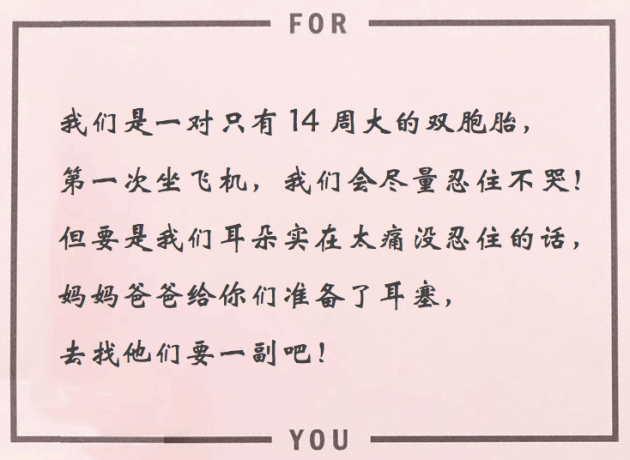 FOR
我们是一对只有14周大的双胞胎，
第一次坐飞机，我们会尽量忍住不哭！
但要是我们耳朵实在太痛没忍住的话，
妈妈爸爸给你们准备了耳塞，
去找他们要一副吧！
YOU